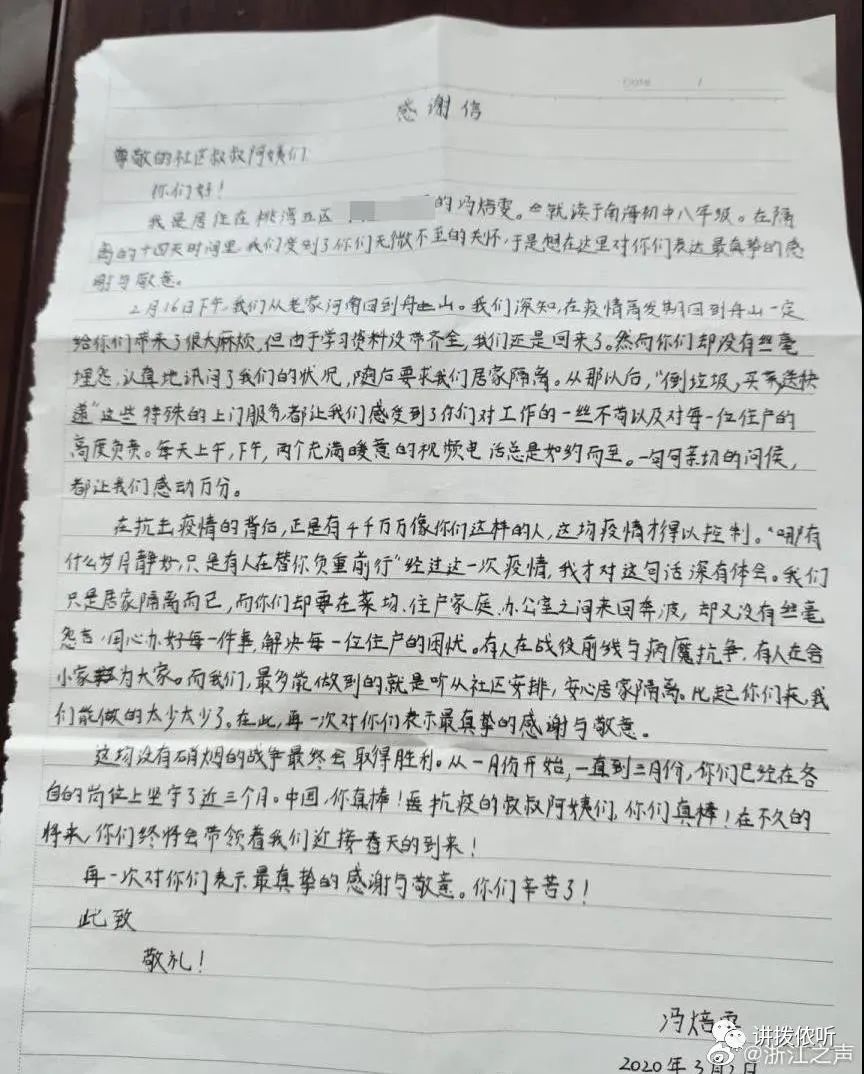 DATE /
感谢信
尊敬的社区叔叔阿姨们
你们好！
我是居住在桃湾五区 的冯焙雯。就读于南海初中八年级。在隔
离的十四天时间里,我们受到了你们无微不至的关怀,于是想在这里对你们表达最真挚的感
谢与敬意。
2月16日下午,我们从老家河南回到舟山。我们深知,在疫情高发期回到舟山一定
给你们带来了很大麻烦,但由于学习资料没带齐全,我们还是回来了。然而你们却没有丝毫
埋怨,认真地讯问了我们的状况,随后要求我们居家隔离。从那以后,“倒垃圾,买菜送快
递”这些特殊的上门服务,都让我们感受到了你们对工作的一丝不苟以及对每一位住户的
高度负责。每天上午,下午,两个充满暖意的视频电话总是如约而至。一句句亲切的问候,
都让我们感动万分。
在抗击疫情的背后,正是有千千万万像你们这样的人,这场疫情才得以控制。“哪有
什么岁月静好,只是有人在替你负重前行”经过这一次疫情,我才对这句话深有体会。我们
只是居家隔离而已,而你们却要在菜场、住户家庭、办公室之间来回奔波,却又没有丝毫
怨言,用心办好每一件事,解决每一位住户的困忧。有人在战役前线与病魔抗争,有人在舍
小家为大家。而我们,最多能做到的就是听从社区安排,安心居家隔离。比起你们来,我
们能做的太少太少了。在此,再一次对你们表示最真挚的感谢与敬意。
这场没有硝烟的战争最终会取得胜利。从一月份开始,一直到三月份,你们已经在各
自的岗位上坚守了近三个月。中国,你真棒！抗疫的叔叔阿姨们,你们真棒！在不久的
将来,你们终将会带领着我们迎接春天的到来！
再一次对你们表示最真挚的感谢与敬意。你们辛苦了！
此致
敬礼！
冯焙雯
2020年3月2日
讲拨侬听
@浙江之声